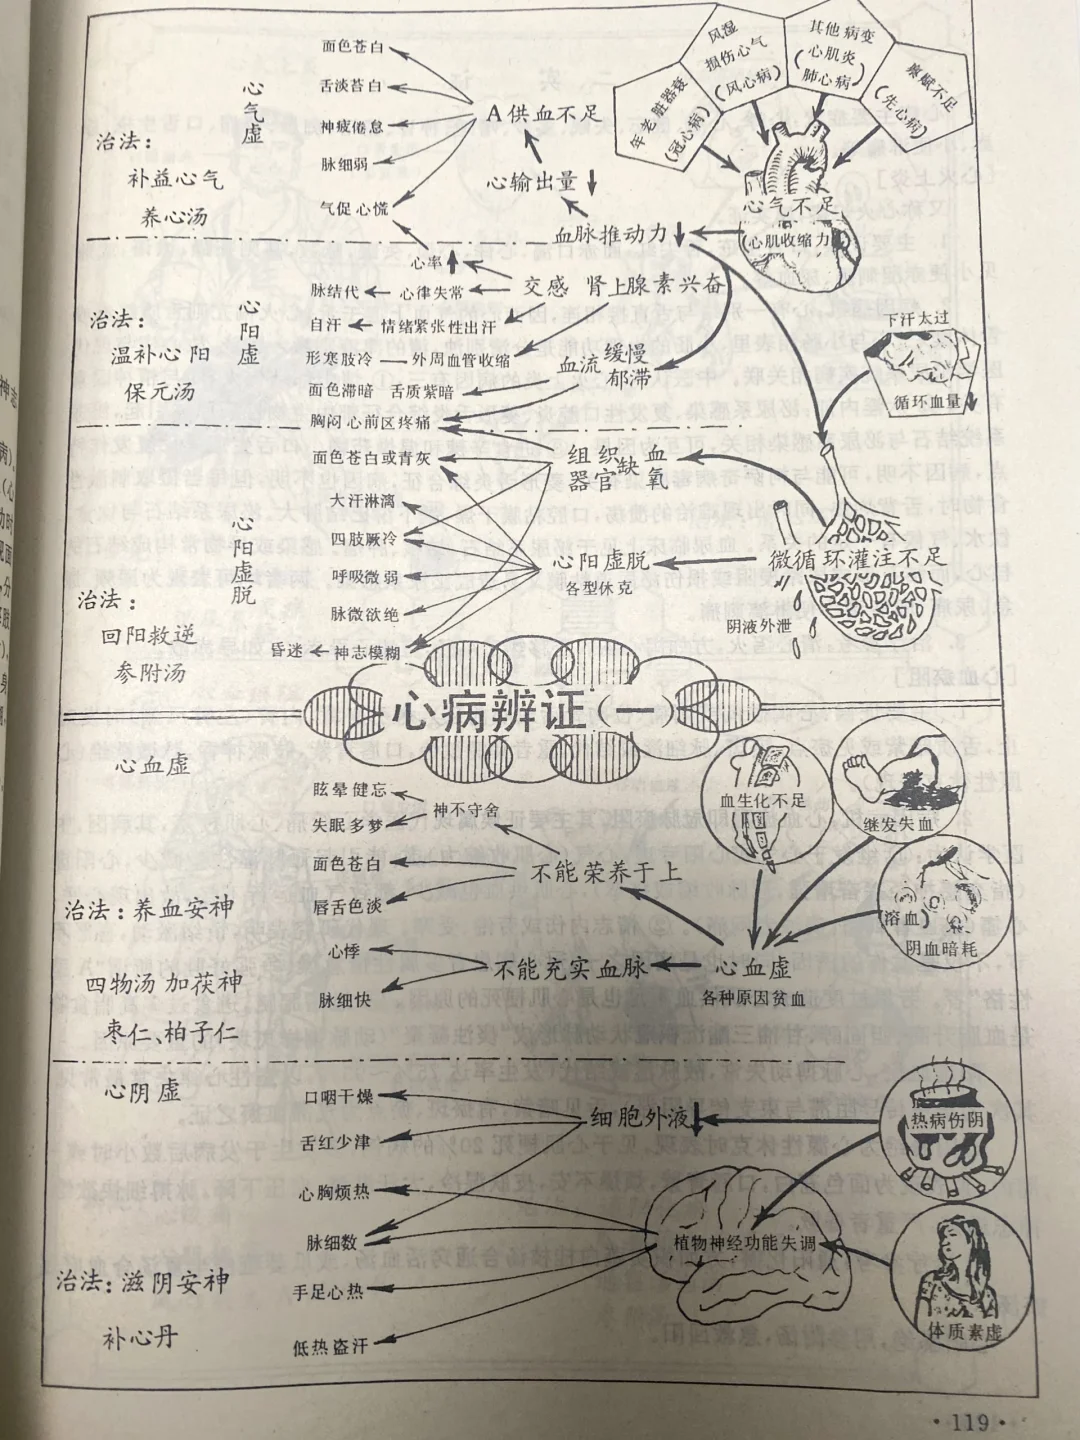 风湿
损伤心气
(风心病)
其他病变
心肌炎
肺心病
禀赋不足
(先心病)
年老脏器衰
(冠心病)
面色苍白
舌淡苔白
神疲倦怠
脉细弱
气促心慌
A供血不足
心输出量
血脉推动力
心气不足
心肌收缩力
心气虚
治法:
补益心气
养心汤
心率
脉结代
心律失常
交感
肾上腺素兴奋
自汗
情绪紧张性出汗
形寒肢冷
外周血管收缩
血流
缓慢
郁滞
面色滞暗
舌质紫暗
胸闷心前区疼痛
心阳虚
治法:
温补心阳
保元汤
下汗太过
循环血量
面色苍白或青灰
组织
器官
缺
血
氧
大汗淋漓
四肢厥冷
呼吸微弱
脉微欲绝
昏迷
神志模糊
心阳虚脱
各型休克
微循环灌注不足
阴液外泄
心阳虚脱
治法:
回阳救逆
参附汤
心病辨证(一
心血虚
眩晕健忘
失眠多梦
神不守舍
面色苍白
唇舌色淡
不能荣养于上
心悸
脉细快
不能充实血脉
心血虚
各种原因贫血
血生化不足
继发失血
溶血
阴血暗耗
治法:养血安神
四物汤加茯神
枣仁、柏子仁
心阴虚
口咽干燥
舌红少津
细胞外液
热病伤阴
心胸烦热
脉细数
手足心热
低热盗汗
植物神经功能失调
体质素虚
治法:滋阴安神
补心丹
·119·